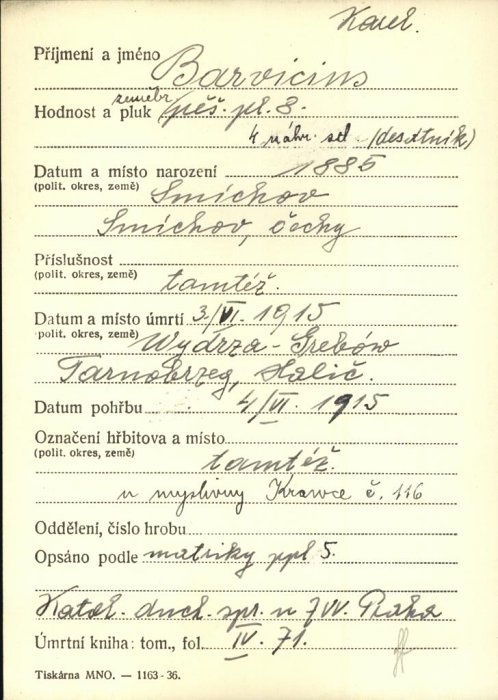 Karel.
Příjmení a jméno Barvicius
zeměbr.
Hodnost a pluk pěš. pl. 8.
4 náhr. set. (desetník)
Datum a místo narození 1885
(polit. okres, země) Smíchov
Smíchov, Čechy
Příslušnost
(polit. okres, země) tamtéž.
Datum a místo úmrtí 3./VI. 1915
(polit. okres, země) Wydrza - Grebów
Tarnobrzeg, Halič.
Datum pohřbu 4/VI. 1915
Označení hřbitova a místo
(polit. okres, země) tamtéž.
u myslivny Krawce č. 116
Oddělení, číslo hrobu
Opsáno podle matriky ppl 5.
Katol. duch. spr. u ZVV. Praha
Úmrtní kniha: tom., fol. IV. 71.
Tiskárna MNO. — 1163-36.